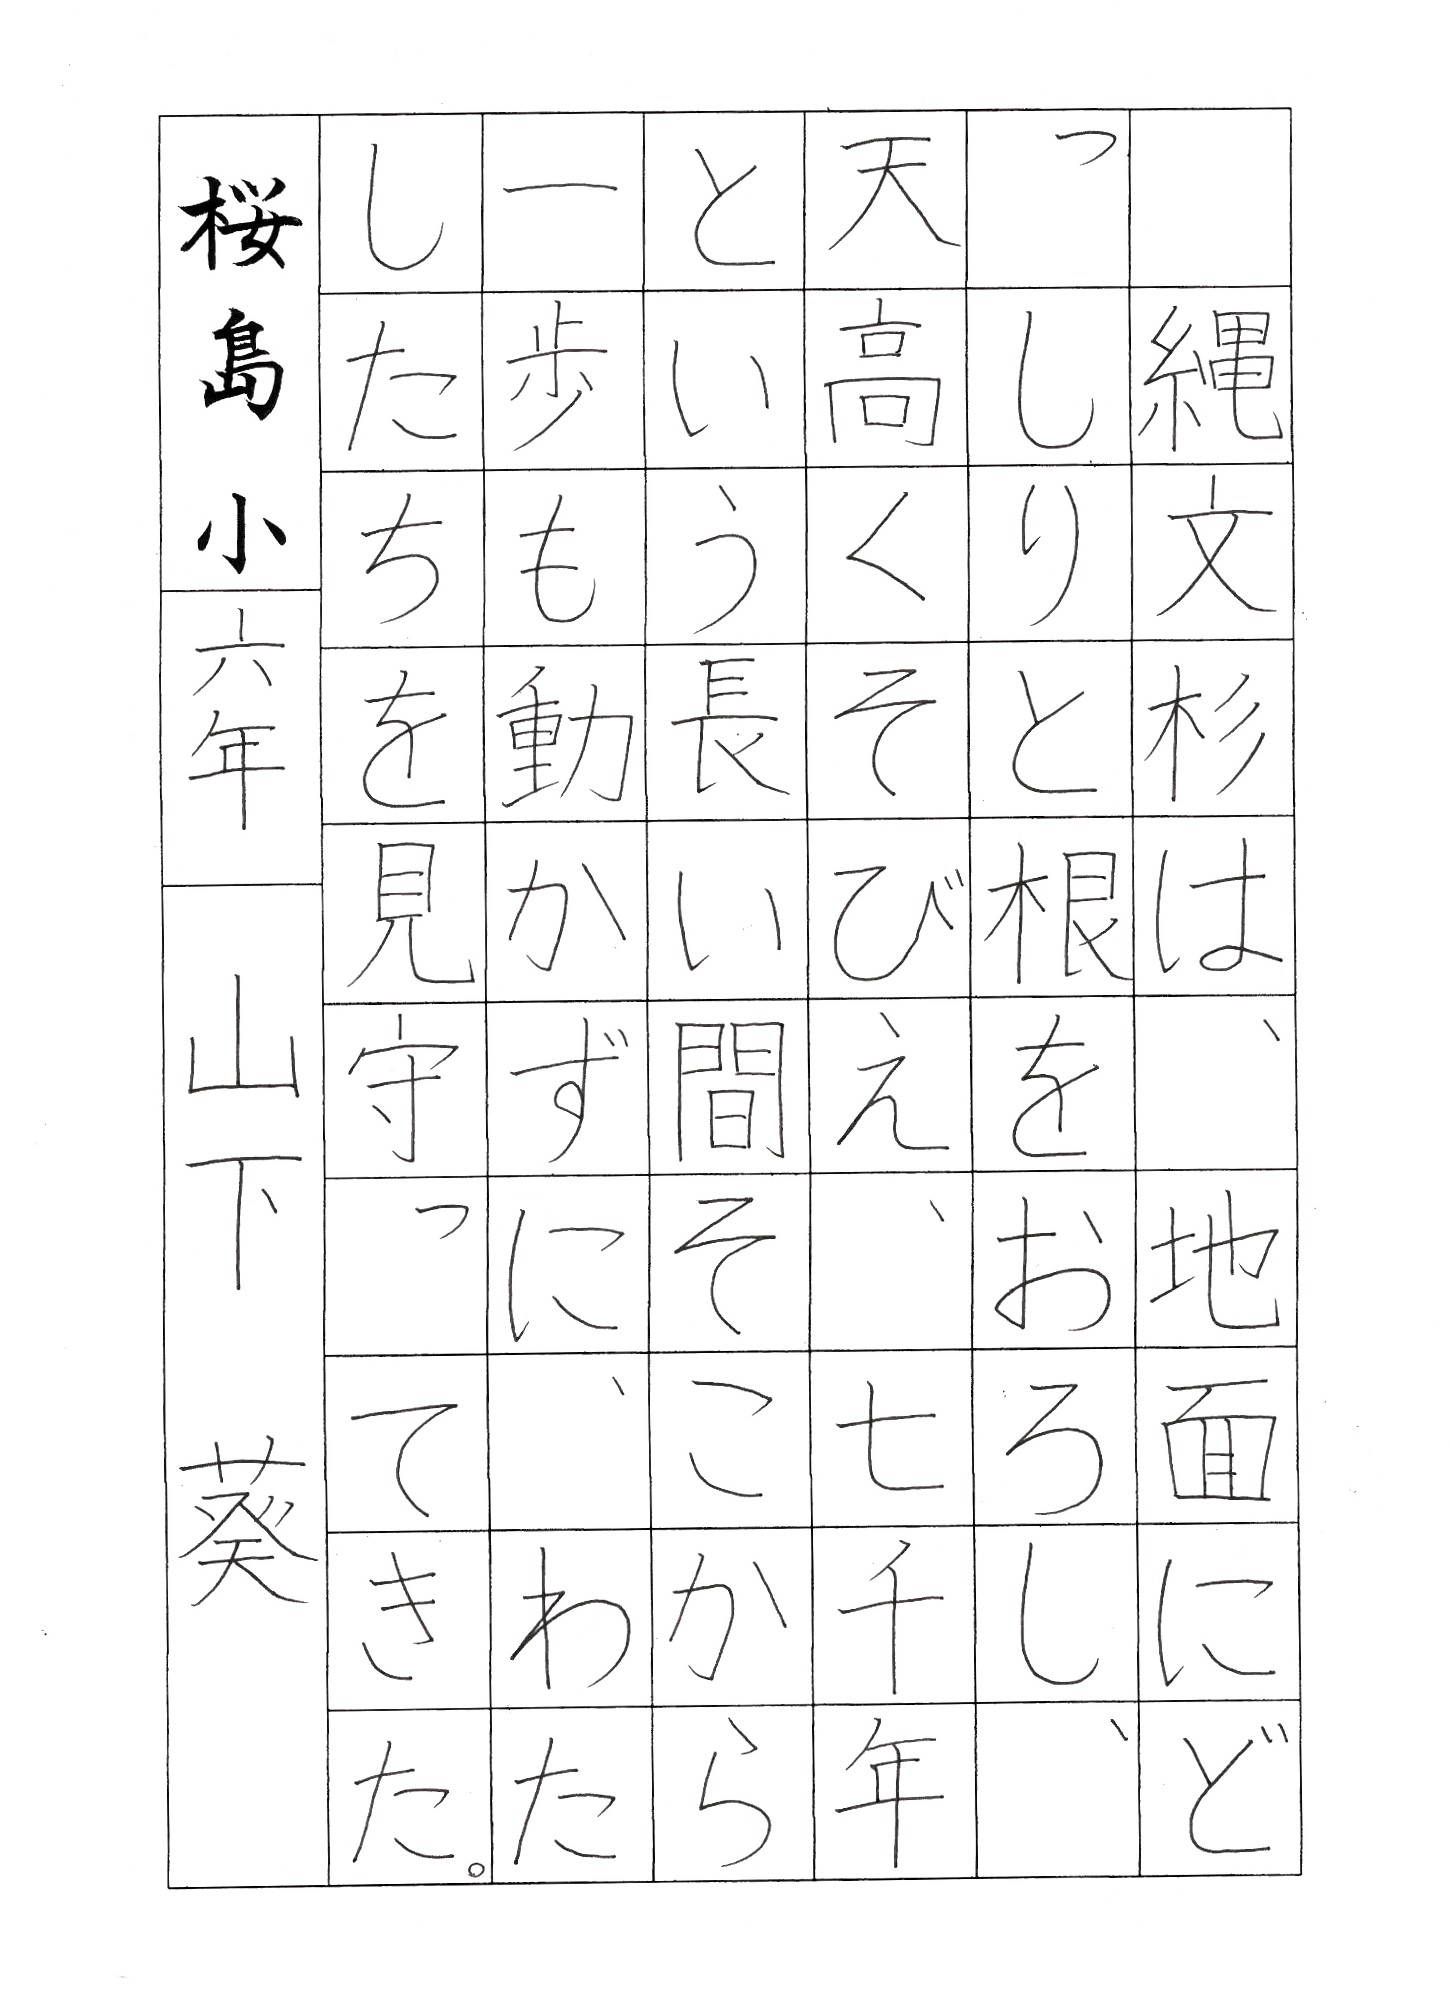 縄文杉は、地面にど
っしりと根をおろし、
天高くそびえ、七千年
という長い間そこから
一歩も動かずに、わた
したちを見守ってきた。
桜島小 六年 山下 葵